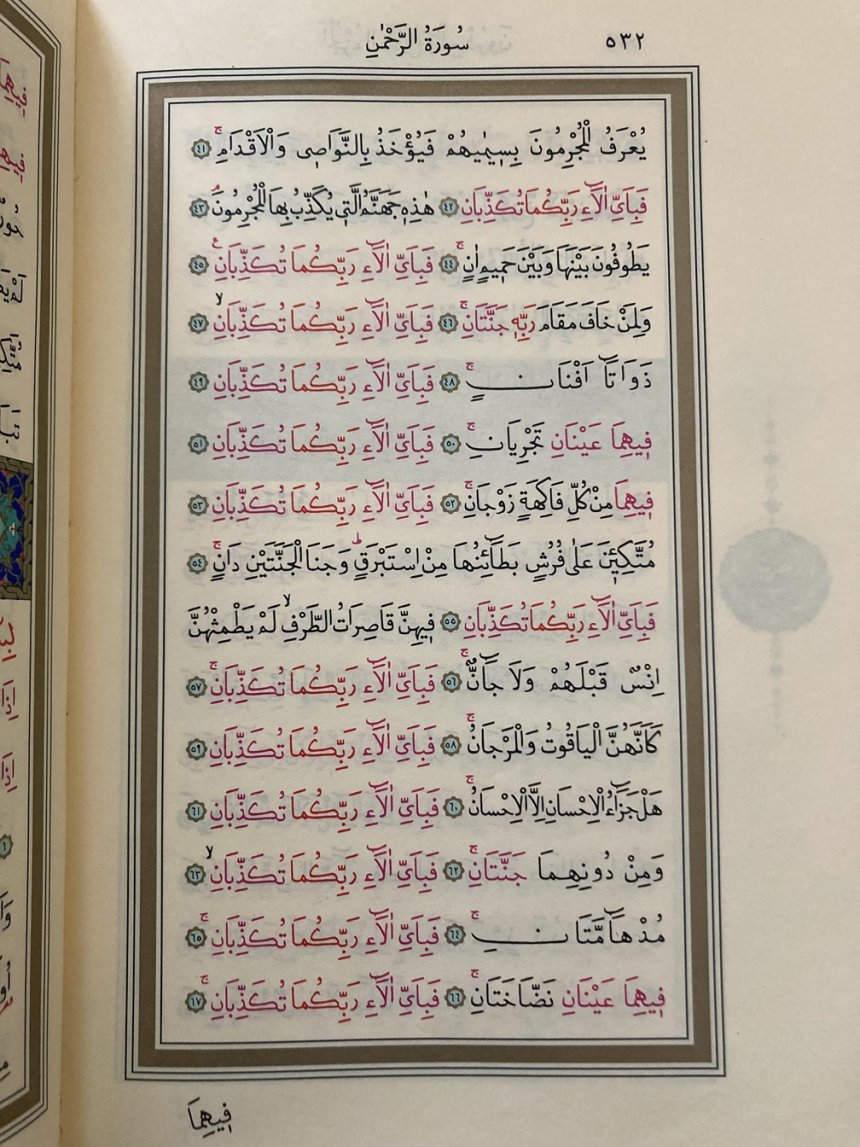 سُورَةُ الرَّحْمٰنِ ٥٣٢
يُعْرَفُ الْمُجْرِمُونَ بِسِيمٰيهُمْ فَيُؤْخَذُ بِالنَّوَاصٖى وَالْاَقْدَامِۚ ٤١
فَبِاَىِّ اٰلَٓاءِ رَبِّكُمَا تُكَذِّبَانِ ٤٢ هٰذِهٖ جَهَنَّمُ الَّتٖى يُكَذِّبُ بِهَا الْمُجْرِمُونَۘ ٤٣
يَطُوفُونَ بَيْنَهَا وَبَيْنَ حَمٖيمٍ اٰنٍۚ ٤٤ فَبِاَىِّ اٰلَٓاءِ رَبِّكُمَا تُكَذِّبَانِ ع ٤٥
وَلِمَنْ خَافَ مَقَامَ رَبِّهٖ جَنَّتَانِۚ ٤٦ فَبِاَىِّ اٰلَٓاءِ رَبِّكُمَا تُكَذِّبَانِۙ ٤٧
ذَوَاتَٓا اَفْنَانٍۚ ٤٨ فَبِاَىِّ اٰلَٓاءِ رَبِّكُمَا تُكَذِّبَانِ ٤٩
فٖيهِمَا عَيْنَانِ تَجْرِيَانِۚ ٥٠ فَبِاَىِّ اٰلَٓاءِ رَبِّكُمَا تُكَذِّبَانِ ٥١
فٖيهِمَا مِنْ كُلِّ فَاكِهَةٍ زَوْجَانِۚ ٥٢ فَبِاَىِّ اٰلَٓاءِ رَبِّكُمَا تُكَذِّبَانِ ٥٣
مُتَّكِـٖٔينَ عَلٰى فُرُشٍ بَطَٓائِنُهَا مِنْ اِسْتَبْرَقٍؕ وَجَنَا الْجَنَّتَيْنِ دَانٍۚ ٥٤
فَبِاَىِّ اٰلَٓاءِ رَبِّكُمَا تُكَذِّبَانِ ٥٥ فٖيهِنَّ قَاصِرَاتُ الطَّرْفِۙ لَمْ يَطْمِثْهُنَّ
اِنْسٌ قَبْلَهُمْ وَلَا جَٓانٌّۚ ٥٦ فَبِاَىِّ اٰلَٓاءِ رَبِّكُمَا تُكَذِّبَانِۚ ٥٧
كَاَنَّهُنَّ الْيَاقُوتُ وَالْمَرْجَانُۚ ٥٨ فَبِاَىِّ اٰلَٓاءِ رَبِّكُمَا تُكَذِّبَانِ ٥٩
هَلْ جَزَٓاءُ الْاِحْسَانِ اِلَّا الْاِحْسَانُۚ ٦٠ فَبِاَىِّ اٰلَٓاءِ رَبِّكُمَا تُكَذِّبَانِ ٦١
وَمِنْ دُونِهِمَا جَنَّتَانِۚ ٦٢ فَبِاَىِّ اٰلَٓاءِ رَبِّكُمَا تُكَذِّبَانِۙ ٦٣
مُدْهَٓامَّتَانِۚ ٦٤ فَبِاَىِّ اٰلَٓاءِ رَبِّكُمَا تُكَذِّبَانِۚ ٦٥
فٖيهِمَا عَيْنَانِ نَضَّاخَتَانِۚ ٦٦ فَبِاَىِّ اٰلَٓاءِ رَبِّكُمَا تُكَذِّبَانِۚ ٦٧
فٖيهِمَا